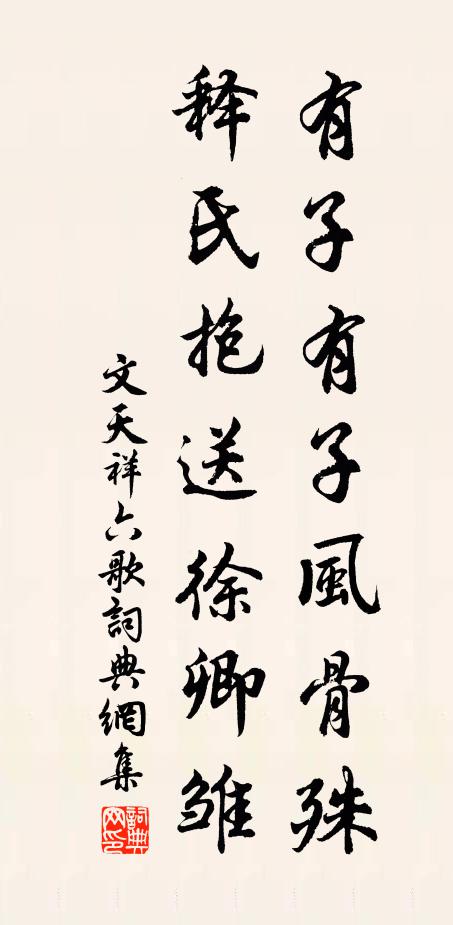 有子有子風骨殊
释氏抱送徐卿雏
文天祥六歌詞典網集
詞典网印